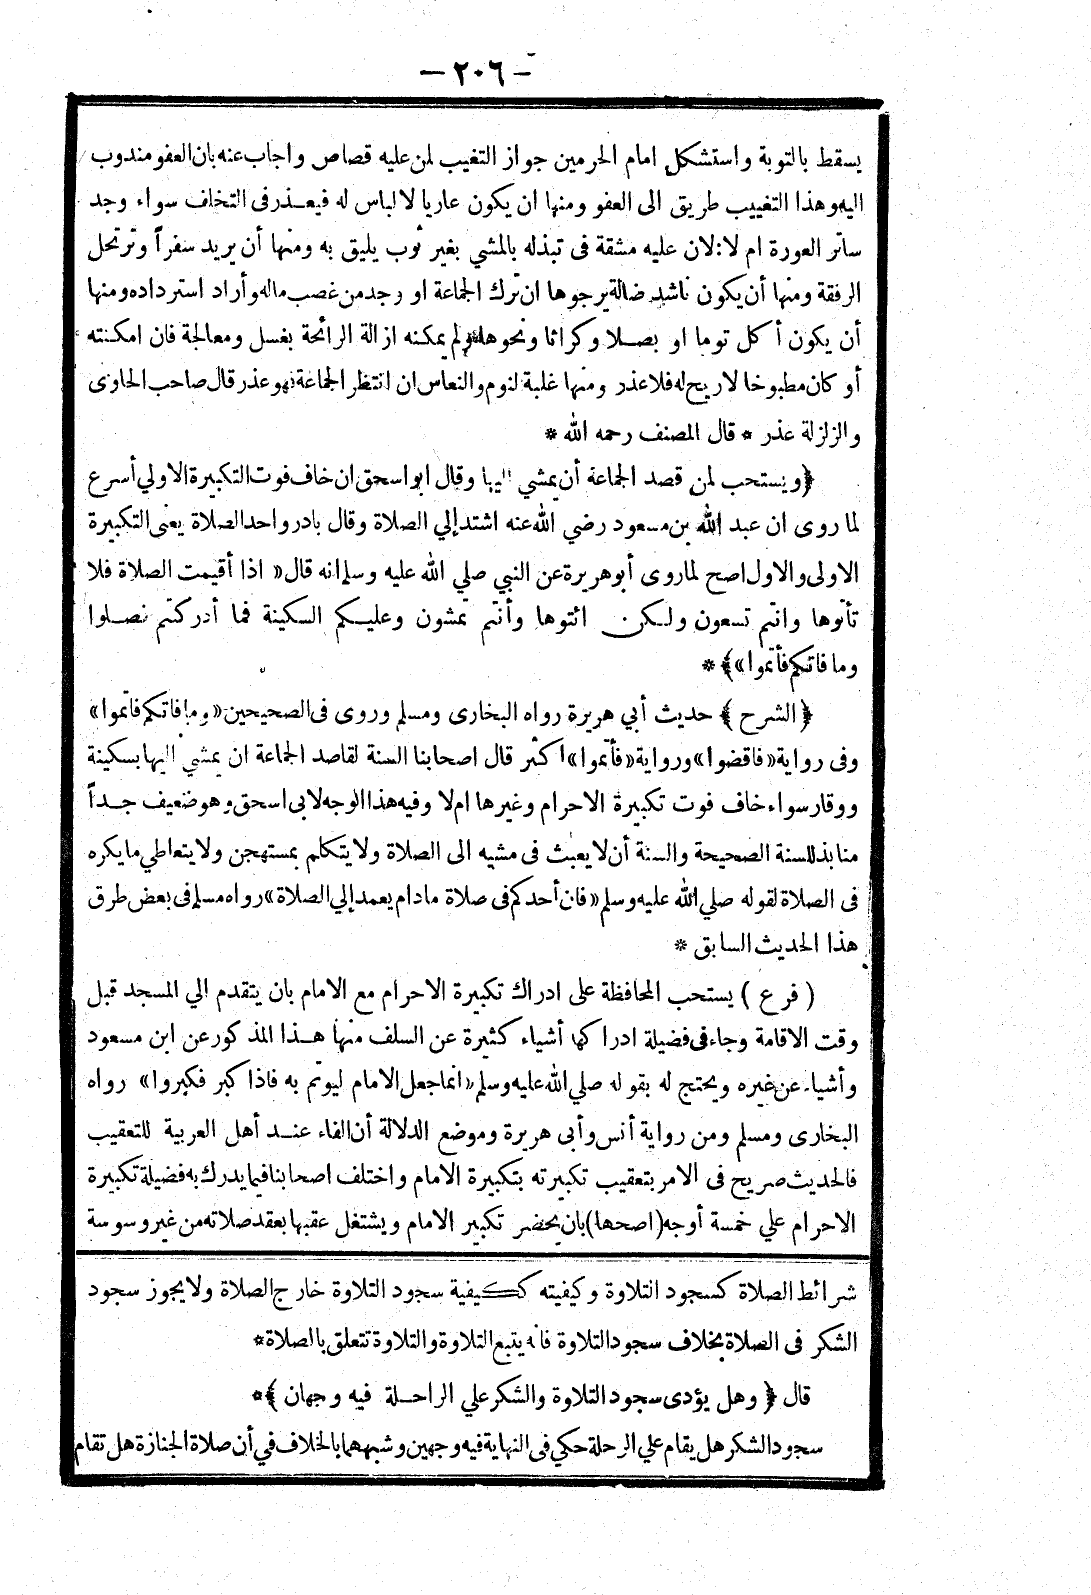 - ٢٠٦ -
يسقط بالتوبة واستشكل امام الحرمين جواز التغيب لمن عليه قصاص واجاب عنه بان العفو مندوب
اليه وهذا التغييب طريق الى العفو ومنها ان يكون عاريا لا لباس له فيعـذر فى التخلف سواء وجد
ساتر العورة ام لا: لان عليه مشقة فى تبذله بالمشي بغير ثوب يليق به ومنها أن يريد سفراً وترتحل
الرفقة ومنها أن يكون ناشد ضالة يرجوها ان ترك الجماعة او وجد من غصب ماله وأراد استرداده ومنها
أن يكون أكل ثوما او بصـلا وكراثا ونحوها ولم يمكنه ازالة الرائحة بغسل ومعالجة فان امكنته
أو كان مطبوخا لا ريح له فلا عذر ومنها غلبة لنوم والنعاس ان انتظر الجماعة فهو عذر قال صاحب الحاوى
والزلزلة عذر * قال المصنف رحمه الله *
﴿ويستحب لمن قصد الجماعة أن يمشي اليها وقال ابو اسحق ان خاف فوت التكبيرة الاولي أسرع
لما روى ان عبد الله بن مسعود رضي الله عنه اشتد إلي الصلاة وقال بادروا حد الصلاة يعنى التكبيرة
الاولى والاول اصح لما روى أبو هريرة عن النبي صلي الله عليه وسلم انه قال « اذا أقيمت الصلاة فلا
تأتوها وانتم تسعون ولـكن ائتوها وأنتم تمشون وعليـكم السكينة فما أدركتم فصـلوا
وما فاتكم فأتموا»﴾ *
﴿الشرح﴾ حديث أبي هريرة رواه البخارى ومسلم وروى فى الصحيحين «وما فاتكم فاتموا»
وفى رواية «فاقضوا» ورواية «فأتموا» اكثر قال اصحابنا السنة لقاصد الجماعة ان يمشي اليها بسكينة
ووقار سواء خاف فوت تكبيرة الاحرام وغيرها ام لا وفيه هذا الوجه لابى اسحق وهو ضعيف جـداً
منابذ للسنة الصحيحة والسنة أن لا يعبث فى مشيه الى الصلاة ولا يتكلم بمستهجن ولا يتعاطي ما يكره
فى الصلاة لقوله صلي الله عليه وسلم «فان أحدكم فى صلاة مادام يعمد إلي الصلاة» رواه مسلم فى بعض طرق
هذا الحديث السابق *
( فرع ) يستحب المحافظة على ادراك تكبيرة الاحرام مع الامام بان يتقدم الي المسجد قبل
وقت الاقامة وجاء فى فضيلة ادراكها أشياء كثيرة عن السلف منها هـذا المذكور عن ابن مسعود
وأشياء عن غيره ويحتج له بقوله صلي الله عليه وسلم «انما جعل الامام ليوتم به فاذا كبر فكبروا» رواه
البخارى ومسلم ومن رواية أنس وأبى هريرة وموضع الدلالة أن الفاء عنـد أهل العربية للتعقيب
فالحديث صريح فى الامر بتعقيب تكبيرته بتكبيرة الامام واختلف اصحابنا فيما يدرك به فضيلة تكبيرة
الاحرام علي خمسة أوجه (اصحها) بان يحضر تكبير الامام ويشتغل عقبها بعقد صلاته من غير وسوسة
شرائط الصلاة كسجود التلاوة وكيفيته ككيفية سجود التلاوة خارج الصلاة ولا يجوز سجود
الشكر فى الصلاة بخلاف سجود التلاوة فانه يتبع التلاوة والتلاوة تتعلق بالصلاة*
قال ﴿ وهل يؤدى سجود التلاوة والشكر علي الراحـلة فيه وجهان ﴾*
سجود الشكر هل يقام علي الرحلة حكي فى النهاية فيه وجهين وشبههما بالخلاف في أن صلاة الجنازة هل تقام